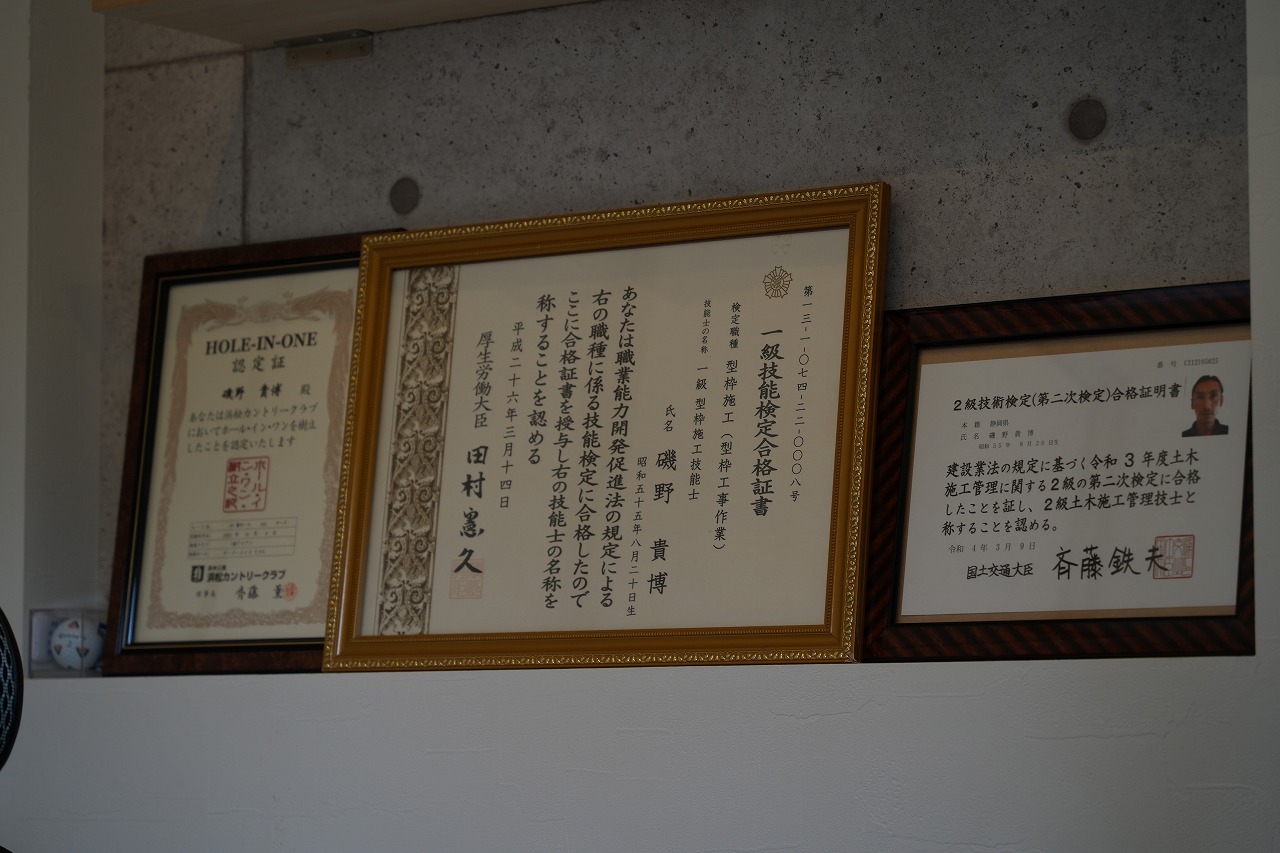 HOLE-IN-ONE
認定証
磯野 貴博 殿
あなたは浜松カントリークラブ
においてホール・イン・ワンを樹立
したことを認定いたします
浜松カントリークラブ
理事長
第一三-一-〇七四-二二-〇〇〇八号
一級技能検定合格証書
検定職種 型枠施工(型枠工事作業)
技能士の名称 一級 型枠施工技能士
氏名 磯野 貴博
昭和五十五年八月二十日生
あなたは職業能力開発促進法の規定による
右の職種に係る技能検定に合格したので
ここに合格証書を授与し右の技能士の名称を
称することを認める
平成二十六年三月十四日
厚生労働大臣 田村憲久
番号 C212105625
2級技術検定(第二次検定)合格証明書
本籍 静岡県
氏名 磯野貴博
昭和 55年 8月20日生
建設業法の規定に基づく令和3年度土木
施工管理に関する2級の第二次検定に合格
したことを証し、2級土木施工管理技士と
称することを認める。
令和 4年 3月 9日
国土交通大臣 斉藤鉄夫